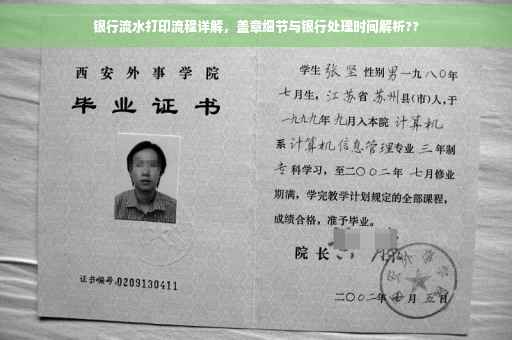 银行流水打印流程详解，盖章细节与银行处理时间解析??
西安外事学院
毕业证书
证书编号:0209130411
学生 张坚 性别 男 一九八〇年
七月生，江苏省 苏州县(市)人，于
一九九九年 九月入本院 计算机
系 计算机信息管理专业 三 年制
专 科学习，至二〇〇二年 七月修业
期满，学完教学计划规定的全部课程，
成绩合格，准予毕业。
院长
二〇〇二年 月 五日